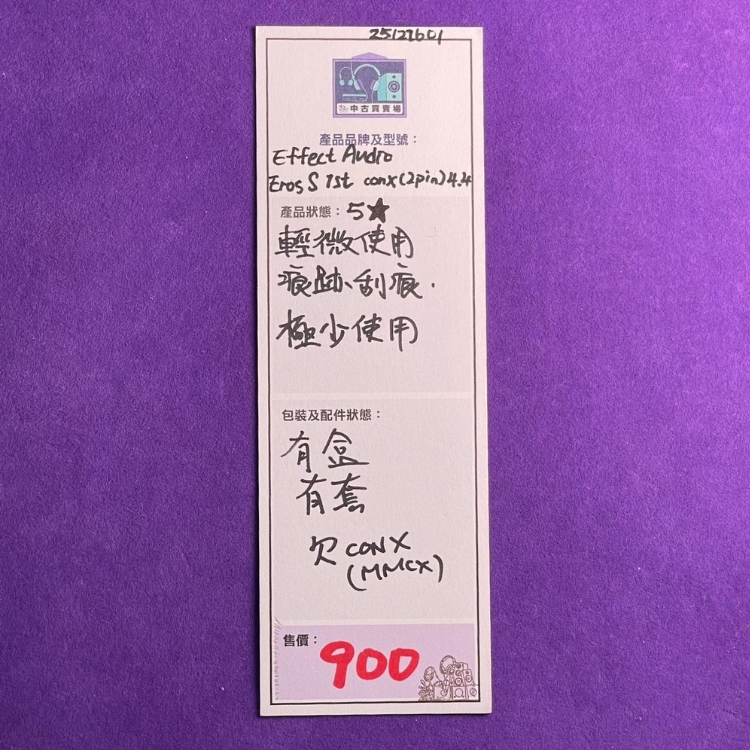 25122601
中古買賣場
產品品牌及型號：
Effect Audio
Eros S 1st conx(2pin)4.4
產品狀態：5★
輕微使用
痕跡、刮痕.
極少使用
包裝及配件狀態：
有盒
有套
欠 CONX
(MMCX)
售價：
900